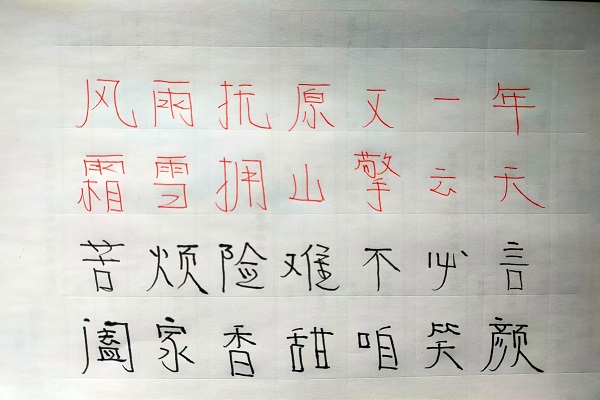 风雨抗原又一年
霜雪拥山擎云天
苦烦险难不必言
阖家香甜咱笑颜